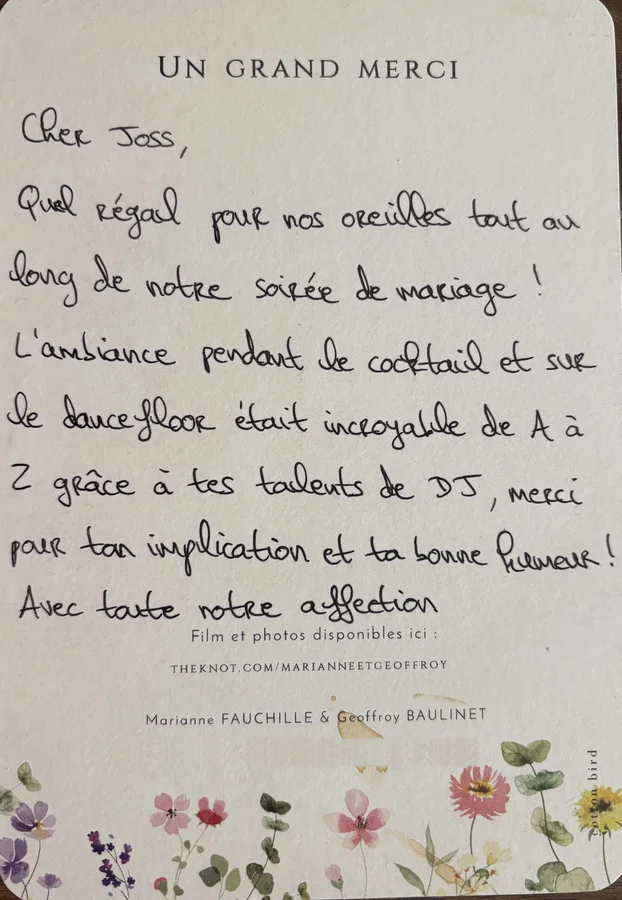 UN GRAND MERCI
Cher Joss,
Quel régal pour nos oreilles tout au
long de notre soirée de mariage !
L'ambiance pendant le cocktail et sur
le dancefloor était incroyable de A à
Z grâce à tes talents de DJ, merci
pour ton implication et ta bonne humeur !
Avec toute notre affection
Film et photos disponibles ici :
THEKNOT.COM/MARIANNEETGEOFFROY
Marianne FAUCHILLE & Geoffroy BAULINET
cotton bird